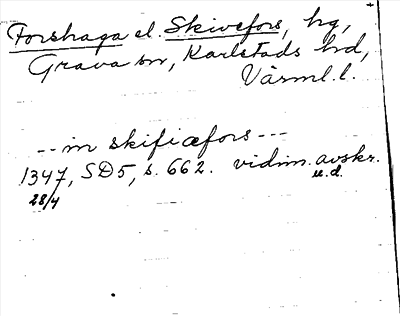 Forshaga el. Skivefors, hg,
Grava sn, Karlstads hrd,
Värml. l.
-- in skifiæfors ---
1347, SD5, s. 662. vidim. avskr.
28/4 u.d.